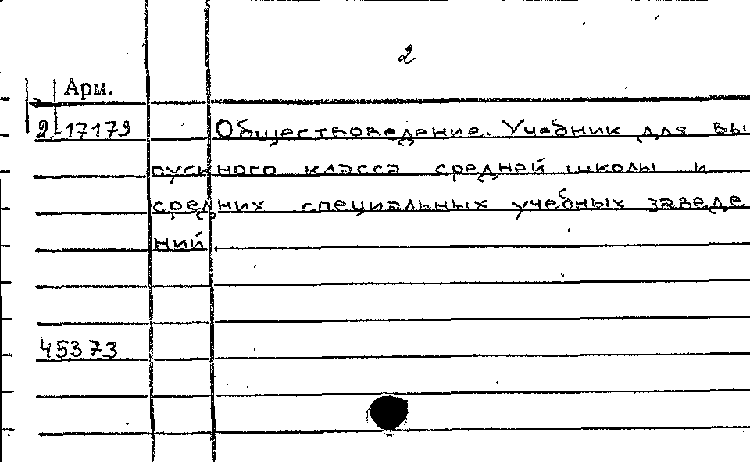 2
Арм.
2-17179 Обществоведение. Учебник для вы
пускного класса средней школы и
средних специальных учебных заведе
ний.
45373